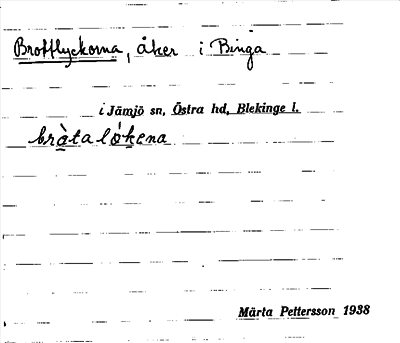 Brottlyckorna, åker i Binga
i Jämjö sn, Östra hd, Blekinge l.
bràtalókena
Märta Pettersson 1938